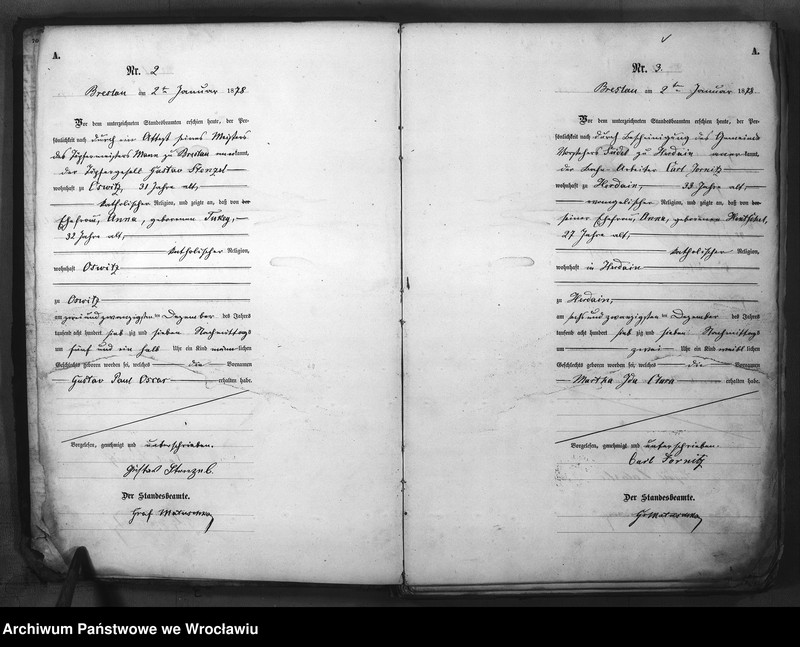 A.
Nr. 2
Breslau am 2ten Januar 1878.
Vor dem unterzeichneten Standesbeamten erschien heute, der Per-
sönlichkeit nach durch ein Attest seines Meisters
des Töpfermeisters Mann zu Breslau anerkannt,
der Töpfergesell Gustav Stenzel
wohnhaft zu Oswitz, 31 Jahre alt,
katholischer Religion, und zeigte an, daß von der
Ehefrau, Anna, geborenen
32 Jahre alt,
katholischer Religion,
wohnhaft Oswitz
zu Oswitz
am zwei und zwanzigsten ten Dezember des Jahres
tausend acht hundert sieb zig und sieben Nachmittags
um fünf und ein halb Uhr ein Kind männ lichen
Geschlechts geboren worden sei, welches die Vornamen
Gustav Paul Oscar erhalten habe.
Vorgelesen, genehmigt und unterschrieben.
Gustav Stenzel.
Der Standesbeamte.
Graf Matuschka
A.
Nr. 3
Breslau am 2ten Januar 1878.
Vor dem unterzeichneten Standesbeamten erschien heute, der Per-
sönlichkeit nach durch Bescheinigung des Gemeinde
Vorstehers zu Herdain aner kannt,
der Bahn Arbeiter Carl Jornitz
wohnhaft zu Herdain, 38 Jahre alt,
evangelischer Religion, und zeigte an, daß von der
seiner Ehefrau, Anna, geborenen Hentschel,
27 Jahre alt,
katholischer Religion,
wohnhaft in Herdain
zu Herdain,
am sechs und zwanzigsten ten Dezember des Jahres
tausend acht hundert sieb zig und sieben Nachmittags
um zwei Uhr ein Kind weibl lichen
Geschlechts geboren worden sei, welches die Vornamen
Martha Ida Clara erhalten habe.
Vorgelesen, genehmigt und unterschrieben.
Carl Jornitz
Der Standesbeamte.
Gr Matuschka
Archiwum Państwowe we Wrocławiu